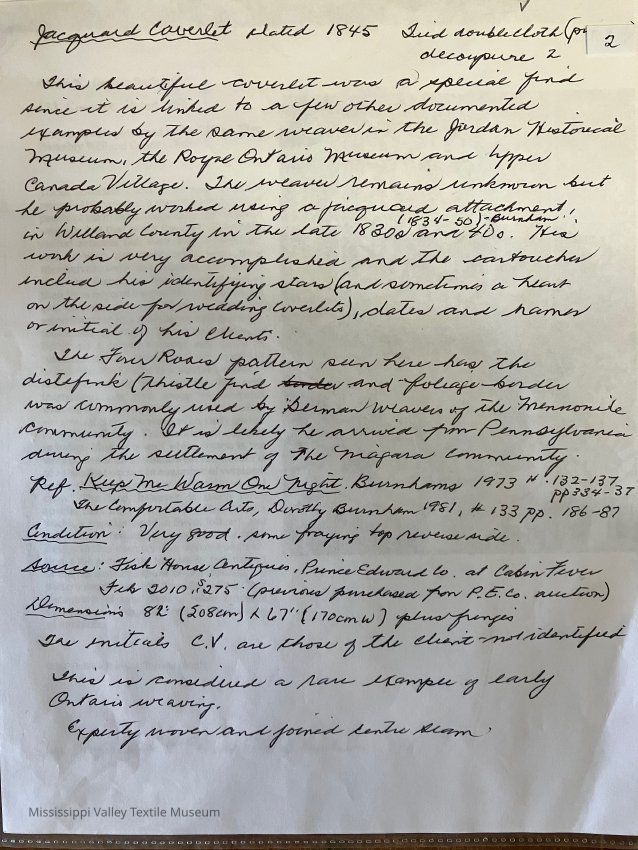 Jacquard Coverlet Dated 1845 Tied doublecloth
2
decoupure 2
This beautiful coverlet was a special find
since it is linked to a few other documented
examples by the same weaver in the Jordan Historical
Museum, the Royal Ontario Museum and Upper
Canada Village. The weaver remains unknown but
he probably worked using a jacquard attachment,
(1834-50) - Burnham
in Willand County in the late 1830s and 40s. His
work is very accomplished and the cartouches
include his identifying stars (and sometimes a heart
on the side for wedding coverlets), dates and names
or initial of his clients.
The Four Roses pattern seen here has the
distefink (thistle find and foliage border
was commonly used by German weavers of the Mennonite
Community. It is likely he arrived from Pennsylvania
during the settlement of the Niagara community.
Ref. Keep Me Warm One Night. Burnhams 1973 # 132-137
pp 334-37
The Comfortable Arts, Dorothy Burnham 1981, # 133 pp. 186-87
Condition: Very good. some fraying top reverse side.
Source: Fish House Antiques, Prince Edward Co. at Cabin Fever
Feb 2010, $275 (previous purchased from P.E.Co. auction)
Dimensions 82" (208cm) x 67" (170cm W) plus fringes
The initials C.V. are those of the client - not identified
This is considered a rare example of early
Ontario weaving.
Experty woven and joined centre seam.
Mississippi Valley Textile Museum